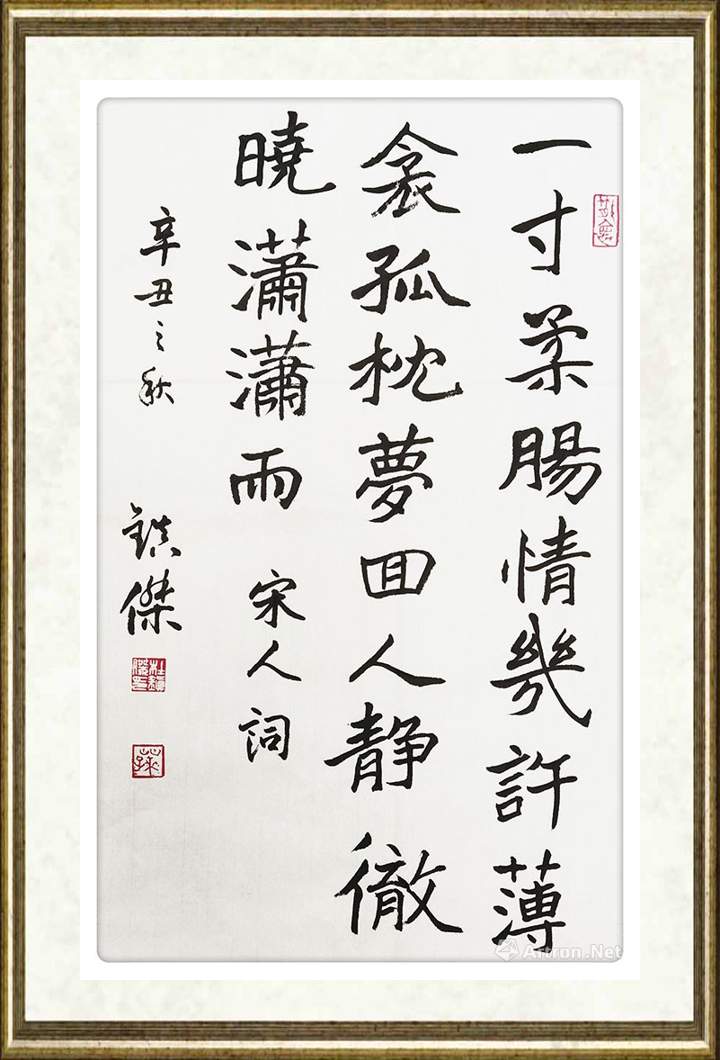 一寸柔腸情幾許薄
衾孤枕夢回人靜徹
曉瀟瀟雨 宋人詞
辛丑之秋 鎮傑
Artron.Net